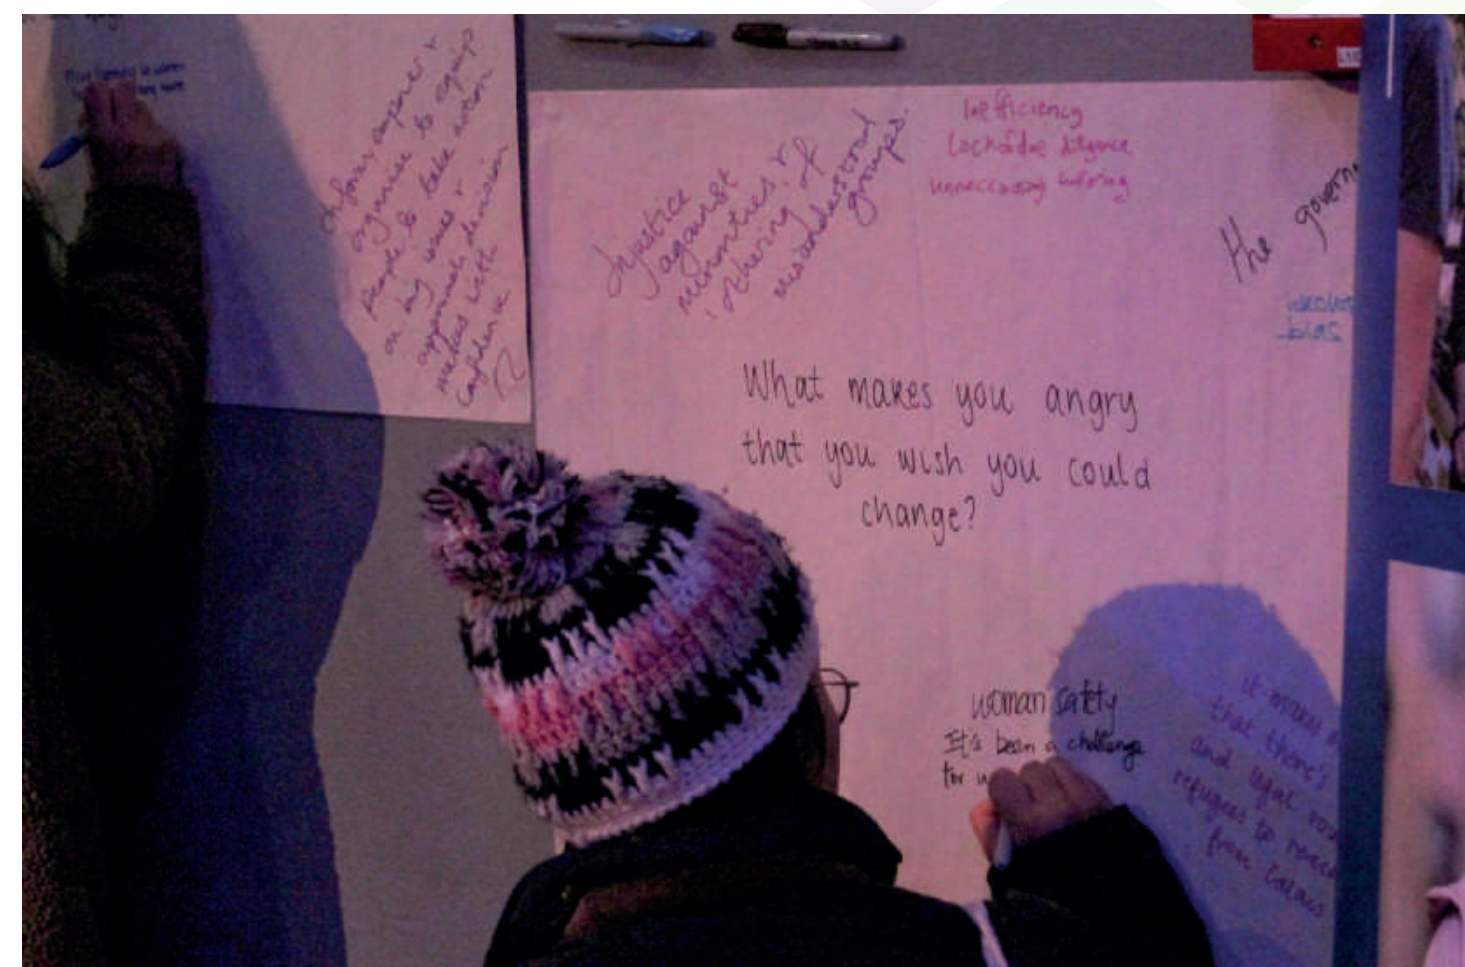 inform, empower &
organise to equip
people to take action
on big issues &
approach decision
makers with
confidence
Injustice
against
minorities &
'othering' of
misunderstood
groups.
Inefficiency
Lack of due diligence
unneccissary
the govern
bias
What makes you angry
that you wish you could
change?
woman safety
It's been a challenge
for
it makes
that there's
and legal
refugees to
from Calais